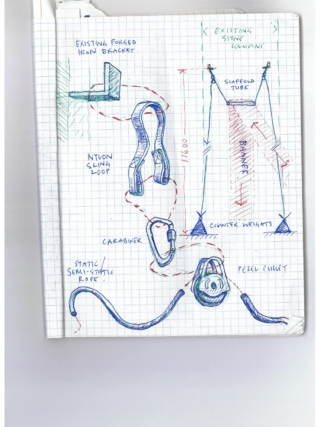 EXISTING FORGED
IRON BRACKET
EXISTING
STONE
SCAFFOLD
TUBE
NYLON
SLING
LOOP
11600
BANNER
COUNTER WEIGHTS
CARABINER
STATIC/
SEMI-STATIC
ROPE.
PETZL PULLEY